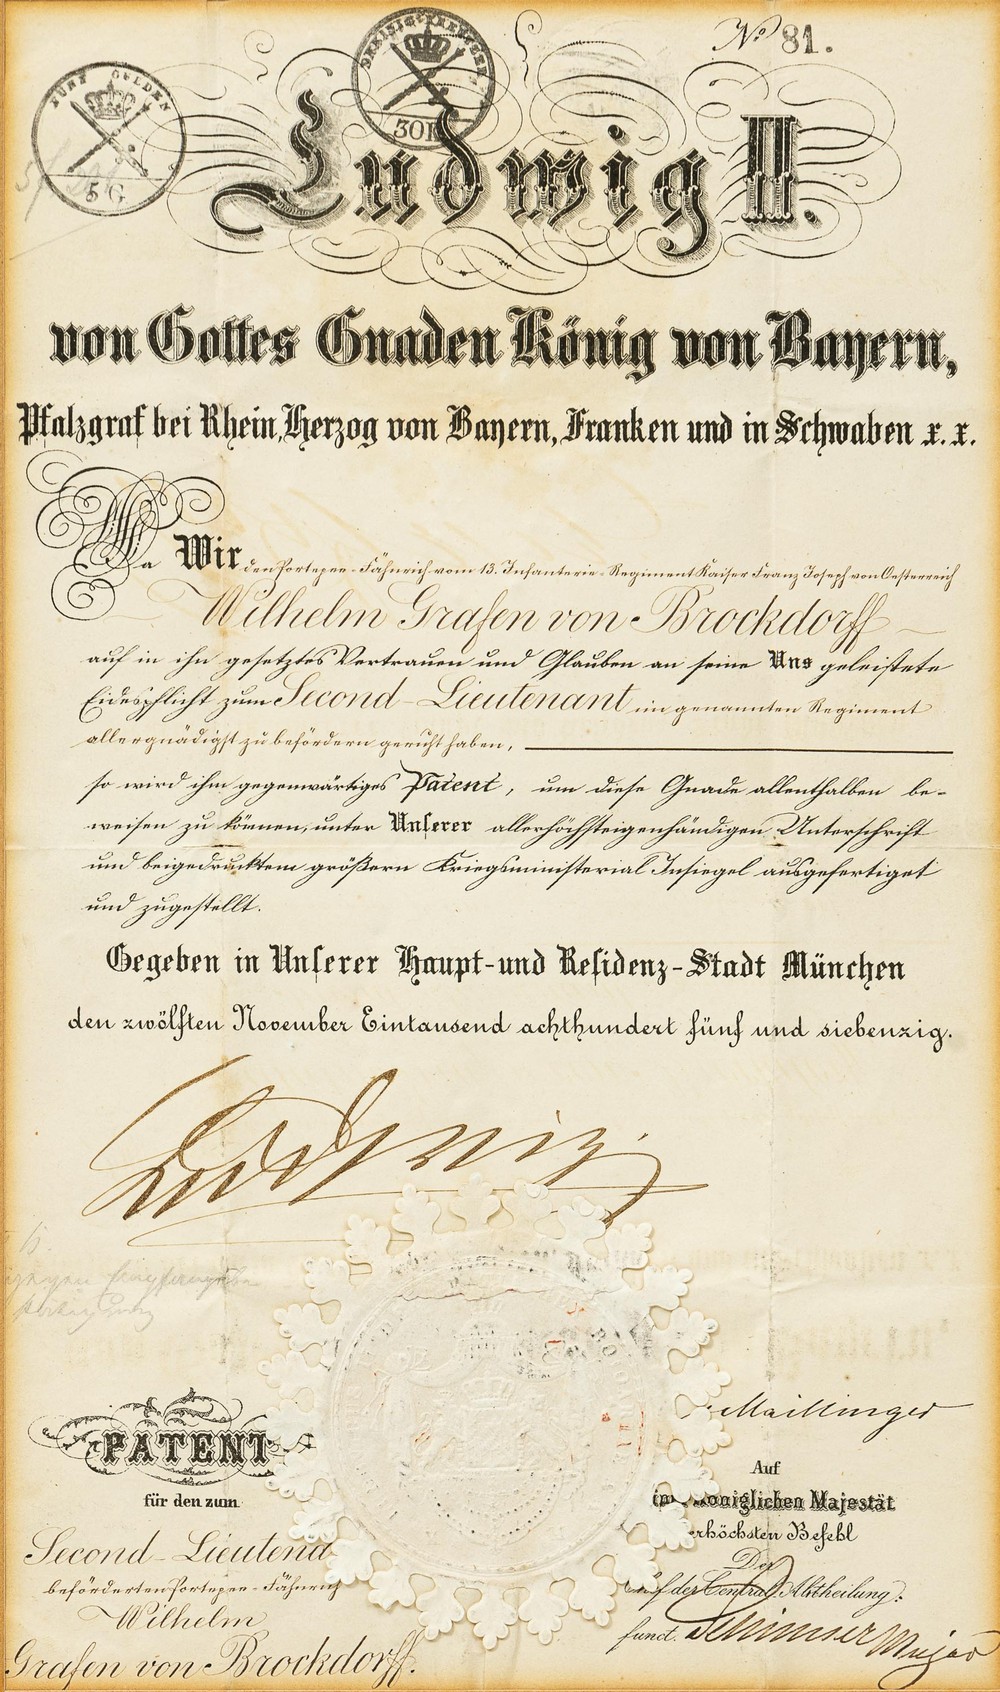 No 81.
FÜNF GULDEN
5 G
DREISIG KREUZER
30K
Ludwig II.
von Gottes Gnaden König von Bayern,
Pfalzgraf bei Rhein, Herzog von Bayern, Franken und in Schwaben x. x.
Da Wir den Portepee-Fähnrich vom 13. Infanterie-Regiment Kaiser Franz Joseph von Oesterreich
Wilhelm Grafen von Brockdorff
auf in ihn gesetztes Vertrauen und Glauben an seine Uns geleistete
Eidespflicht zum Second-Lieutenant im genannten Regiment
allergnädigst zu befördern geruht haben,
so wird ihm gegenwärtiges Patent, um diese Gnade allenthalben be-
weisen zu können, unter Unserer allerhöchsteigenhändigen Unterschrift
und beigedrucktem größern Kriegsministerial Insiegel ausgefertiget
und zugestellt.
Gegeben in Unserer Haupt-und Residenz-Stadt München
den zwölften November Eintausend achthundert fünf und siebenzig.
Ludwig.
Maillinger
PATENT
für den zum
Second-Lieutena
beförderten Portepee-Fähnrich
Wilhelm
Grafen von Brockdorff.
Auf
königlichen Majestät
erhöchsten Befehl
Der
der Central Abtheilung:
funct. Major